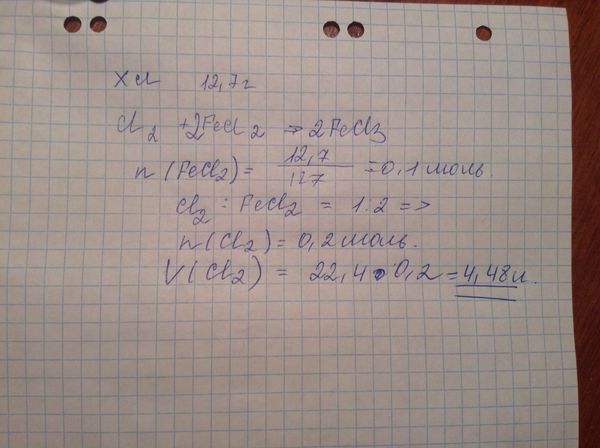 X л 12,7г
Cl2 + 2FeCl2 => 2FeCl3
n (FeCl2) = 12,7/127 = 0,1 моль.
Cl2 : FeCl2 = 1:2 =>
n (Cl2) = 0,2 моль.
V (Cl2) = 22,4 · 0,2 = 4,48 л.